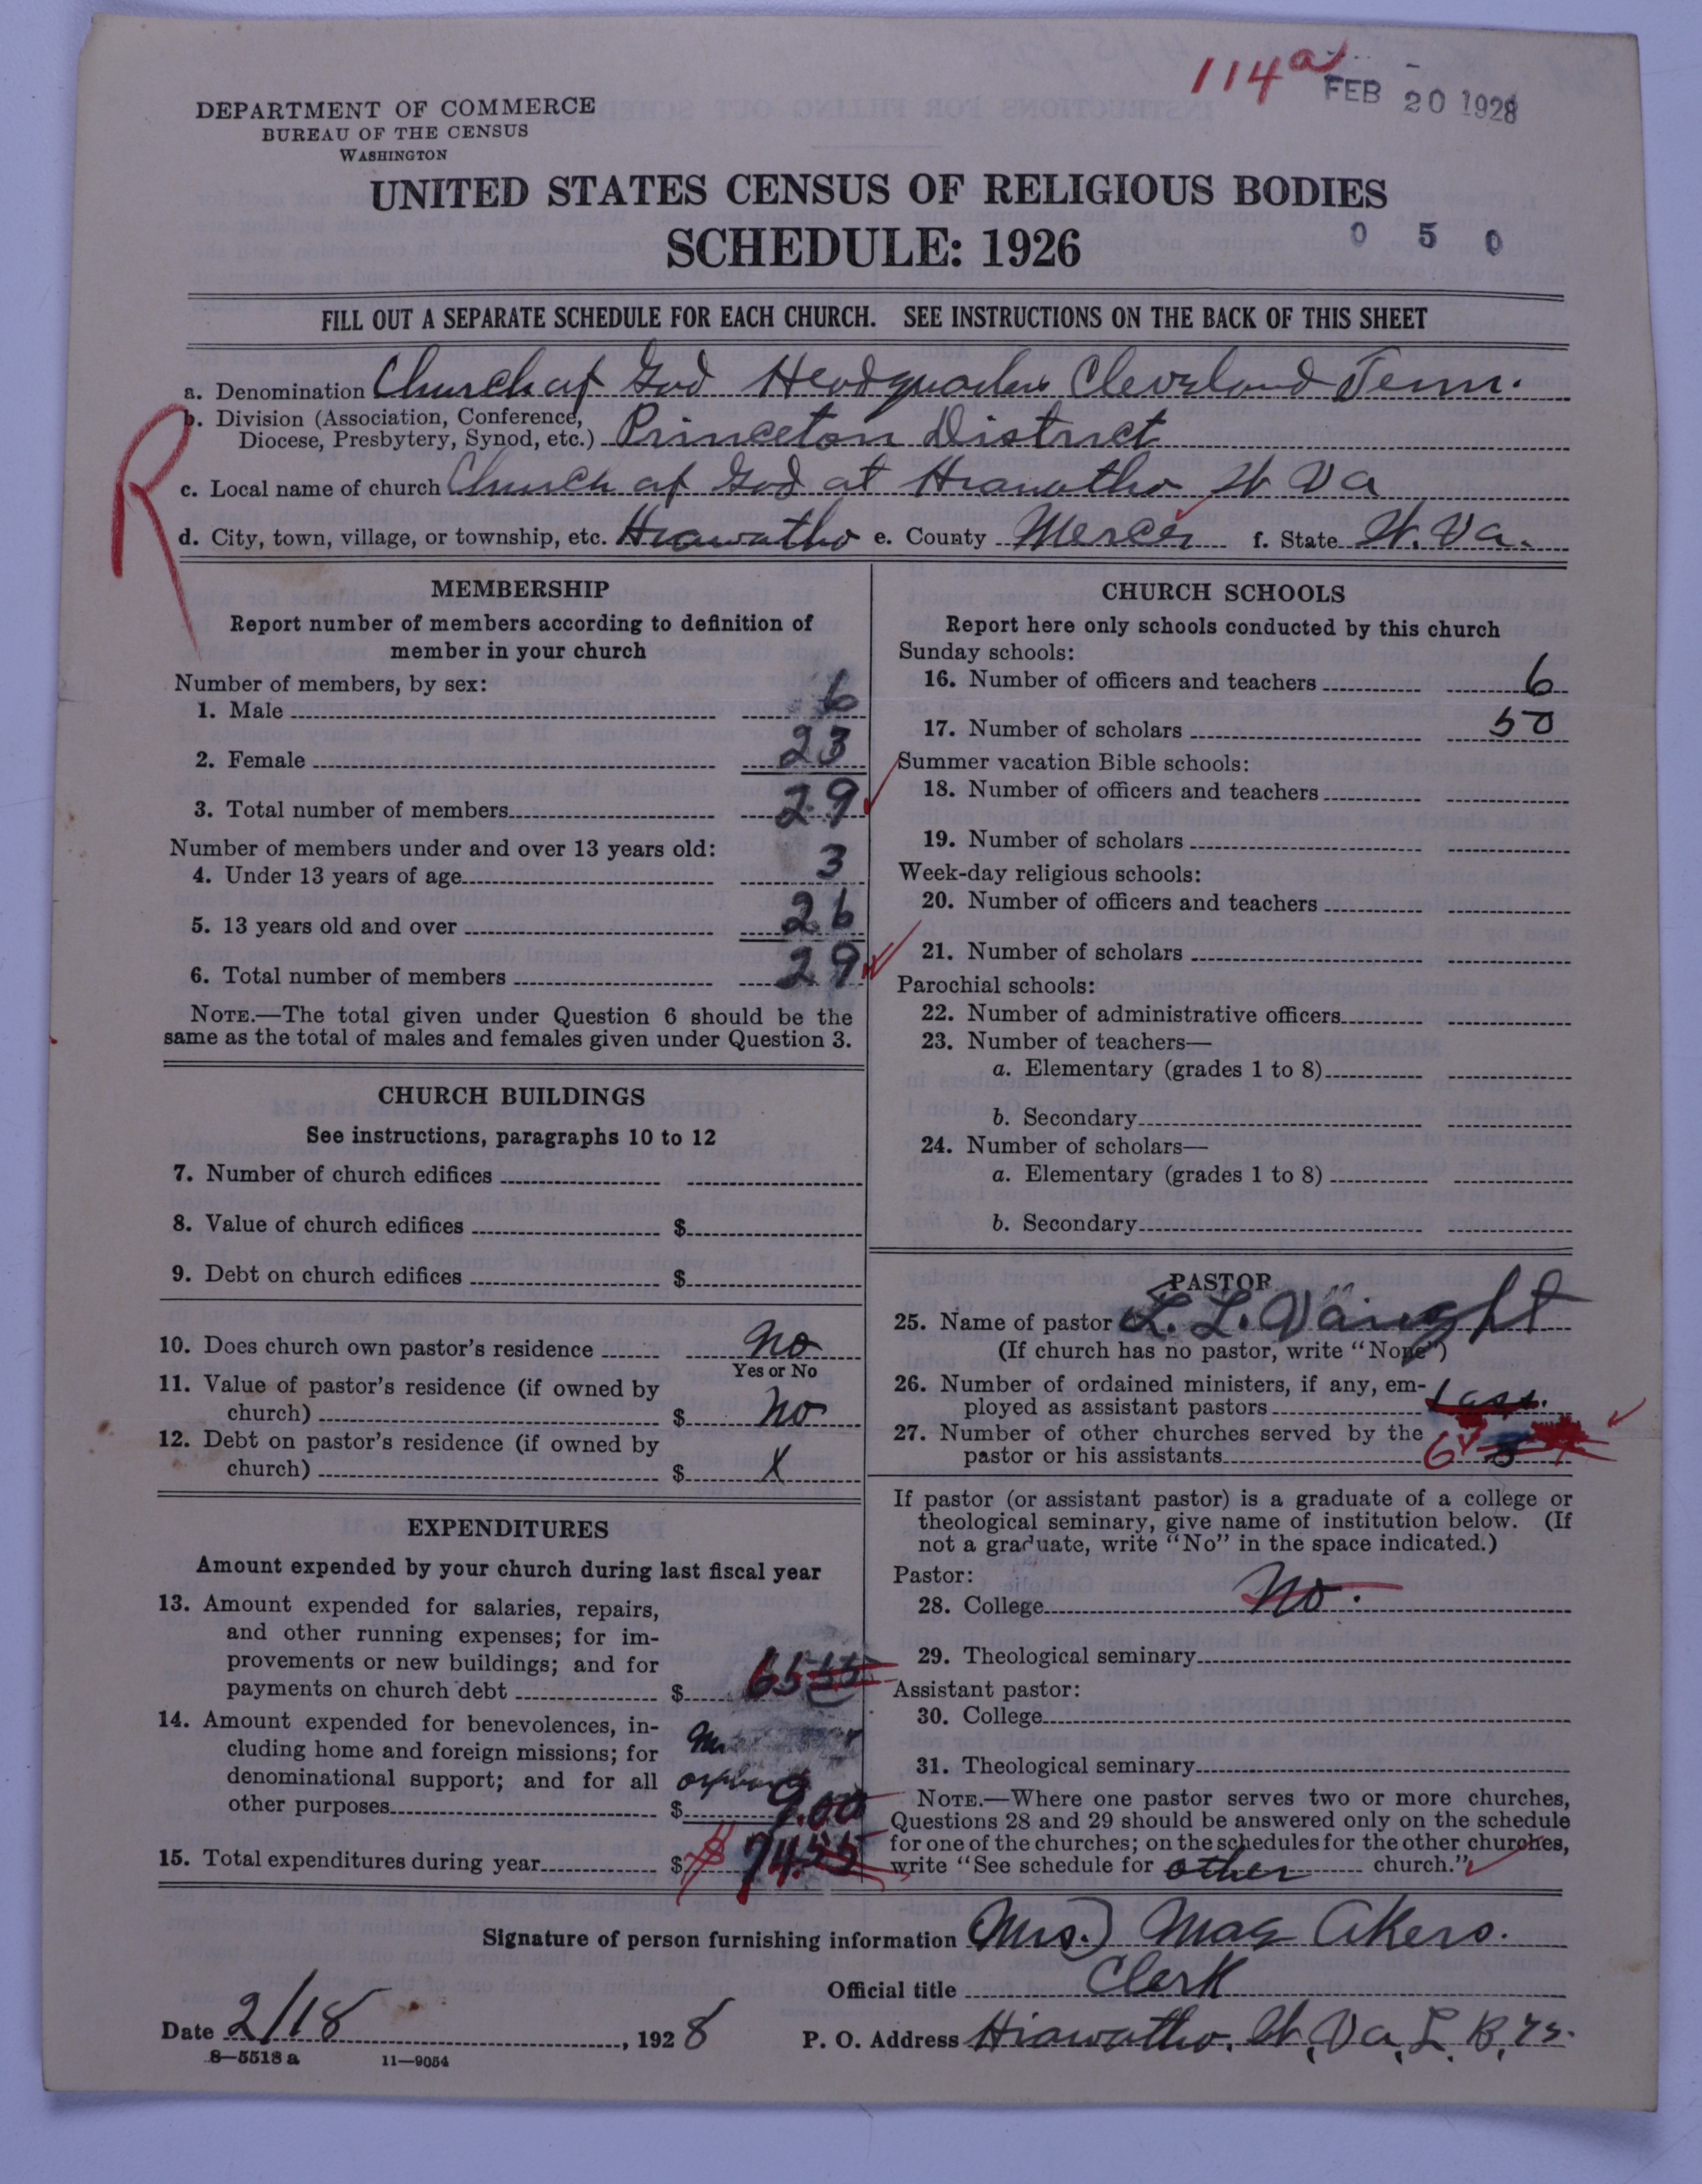 114a
FEB 20 1928
DEPARTMENT OF COMMERCE
BUREAU OF THE CENSUS
WASHINGTON
UNITED STATES CENSUS OF RELIGIOUS BODIES
SCHEDULE: 1926
0 5 0
FILL OUT A SEPARATE SCHEDULE FOR EACH CHURCH. SEE INSTRUCTIONS ON THE BACK OF THIS SHEET
R
a. Denomination Church of God Headquarters Cleveland Tenn.
b. Division (Association, Conference,
Diocese, Presbytery, Synod, etc.) Princeton District
c. Local name of church Church of God at Hiawatha W Va
d. City, town, village, or township, etc. Hiawatha e. County Mercer f. State W. Va.
MEMBERSHIP
Report number of members according to definition of
member in your church
Number of members, by sex:
1. Male 6
2. Female 23
3. Total number of members 29
Number of members under and over 13 years old:
4. Under 13 years of age 3
5. 13 years old and over 26
6. Total number of members 29
NOTE.—The total given under Question 6 should be the
same as the total of males and females given under Question 3.
CHURCH BUILDINGS
See instructions, paragraphs 10 to 12
7. Number of church edifices
8. Value of church edifices $
9. Debt on church edifices $
10. Does church own pastor's residence no
Yes or No
11. Value of pastor's residence (if owned by
church) $ no
12. Debt on pastor's residence (if owned by
church) $ X
EXPENDITURES
Amount expended by your church during last fiscal year
13. Amount expended for salaries, repairs,
and other running expenses; for im-
provements or new buildings; and for
payments on church debt $ 65 55
14. Amount expended for benevolences, in-
cluding home and foreign missions; for
denominational support; and for all
other purposes $ 9.00
15. Total expenditures during year $ 74.55
CHURCH SCHOOLS
Report here only schools conducted by this church
Sunday schools:
16. Number of officers and teachers 6
17. Number of scholars 50
Summer vacation Bible schools:
18. Number of officers and teachers
19. Number of scholars
Week-day religious schools:
20. Number of officers and teachers
21. Number of scholars
Parochial schools:
22. Number of administrative officers
23. Number of teachers—
a. Elementary (grades 1 to 8)
b. Secondary
24. Number of scholars—
a. Elementary (grades 1 to 8)
b. Secondary
PASTOR
25. Name of pastor L. L. Vaught
(If church has no pastor, write "None")
26. Number of ordained ministers, if any, em-
ployed as assistant pastors
27. Number of other churches served by the
pastor or his assistants 6
If pastor (or assistant pastor) is a graduate of a college or
theological seminary, give name of institution below. (If
not a graduate, write "No" in the space indicated.)
Pastor:
28. College No.
29. Theological seminary
Assistant pastor:
30. College
31. Theological seminary
NOTE.—Where one pastor serves two or more churches,
Questions 28 and 29 should be answered only on the schedule
for one of the churches; on the schedules for the other churches,
write "See schedule for other church."
Signature of person furnishing information Mrs.) Mag Akers.
Official title Clerk
Date 2/18, 1928 P. O. Address Hiawatha, W, Va, L. B,
8—5518a 11—9054